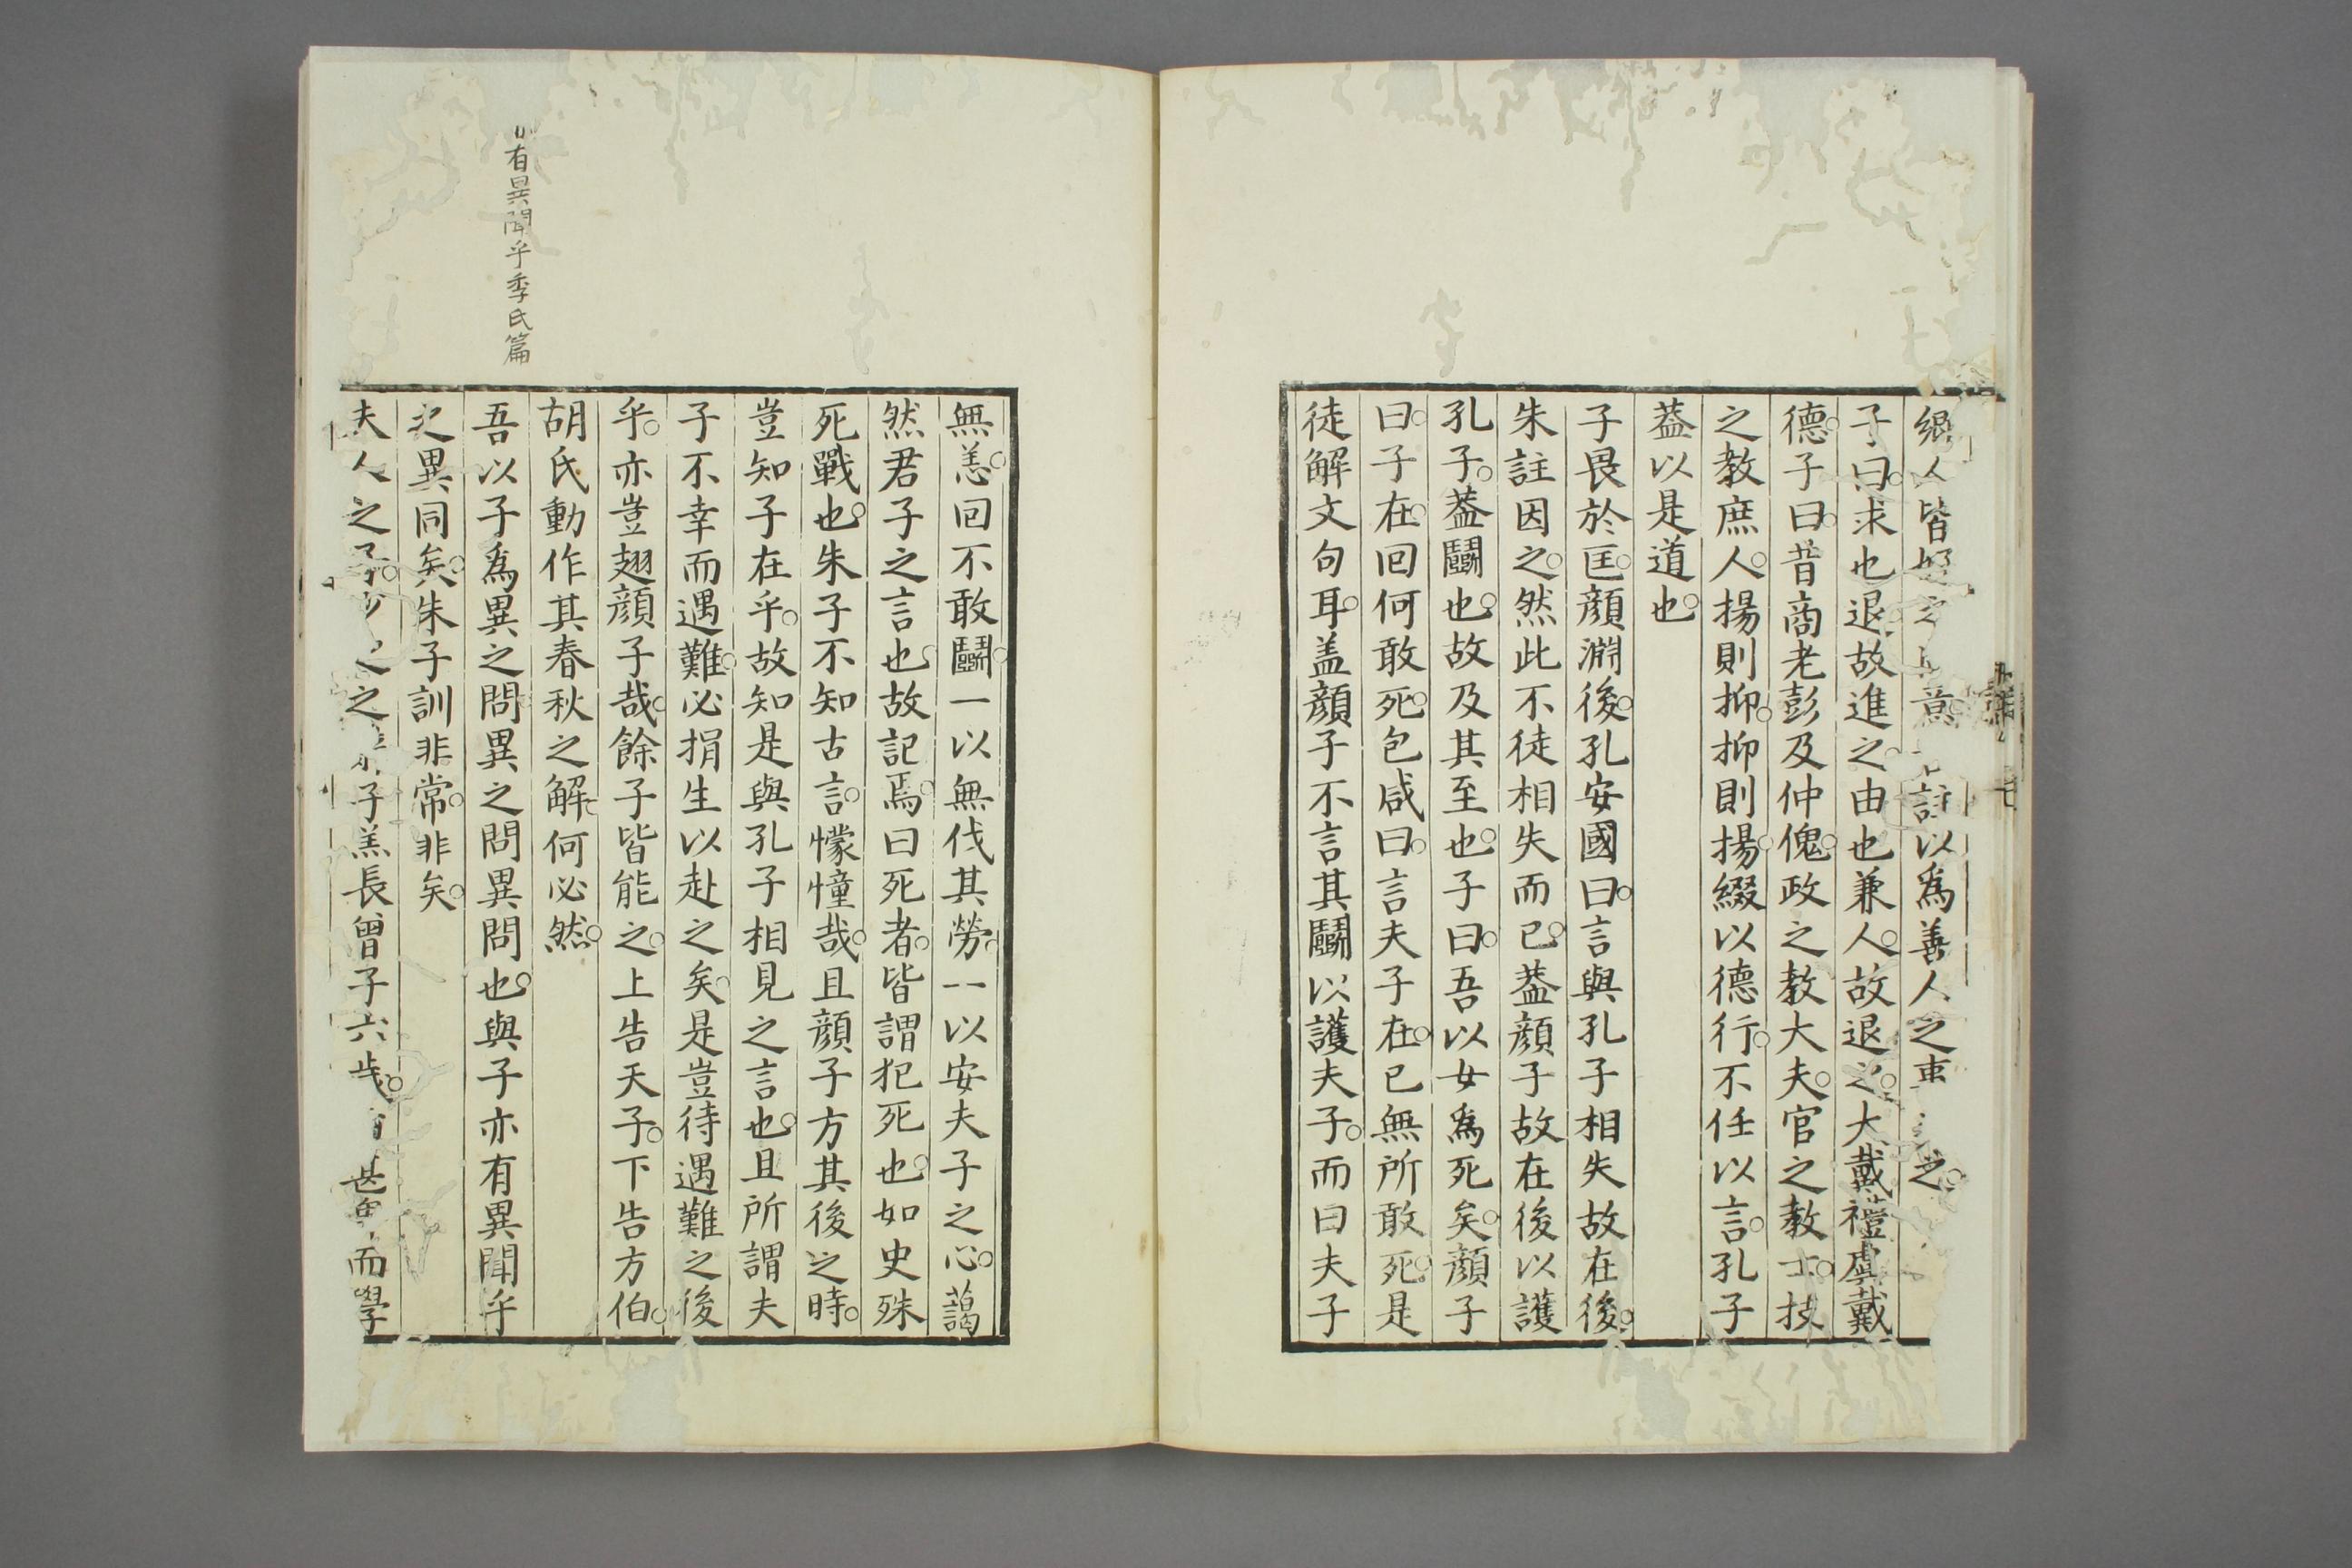 鄉人皆好之 意 註以爲善人之東 之
子曰求也退故進之由也兼人故退之大戴禮虞戴
德子曰昔商老彭及仲傀政之教大夫官之教士技
之教庶人揚則抑抑則揚綴以德行不任以言孔子
葢以是道也
子畏於匡顔淵後孔安國曰言與孔子相失故在後
朱註因之然此不徒相失而已葢顔子故在後以護
孔子葢鬬也故及其至也子曰吾以女爲死矣顔子
曰子在回何敢死包咸曰言夫子在已無所敢死是
徒解文句耳盖顔子不言其鬬以護夫子而曰夫子
無恙回不敢鬬一以無伐其勞一以安夫子之心藹
然君子之言也故記焉曰死者皆謂犯死也如史殊
死戰也朱子不知古言懞憧哉且顔子方其後之時
豈知子在乎故知是與孔子相見之言也且所謂夫
子不幸而遇難必捐生以赴之矣是豈待遇難之後
乎亦豈翅顔子哉餘子皆能之上告天子下告方伯
胡氏動作其春秋之解何必然
有異聞乎季氏篇
吾以子爲異之問異之問異問也與子亦有異聞乎
之異同矣朱子訓非常非矣
夫人之子 之 子羔長曾子六歲 甚 而學